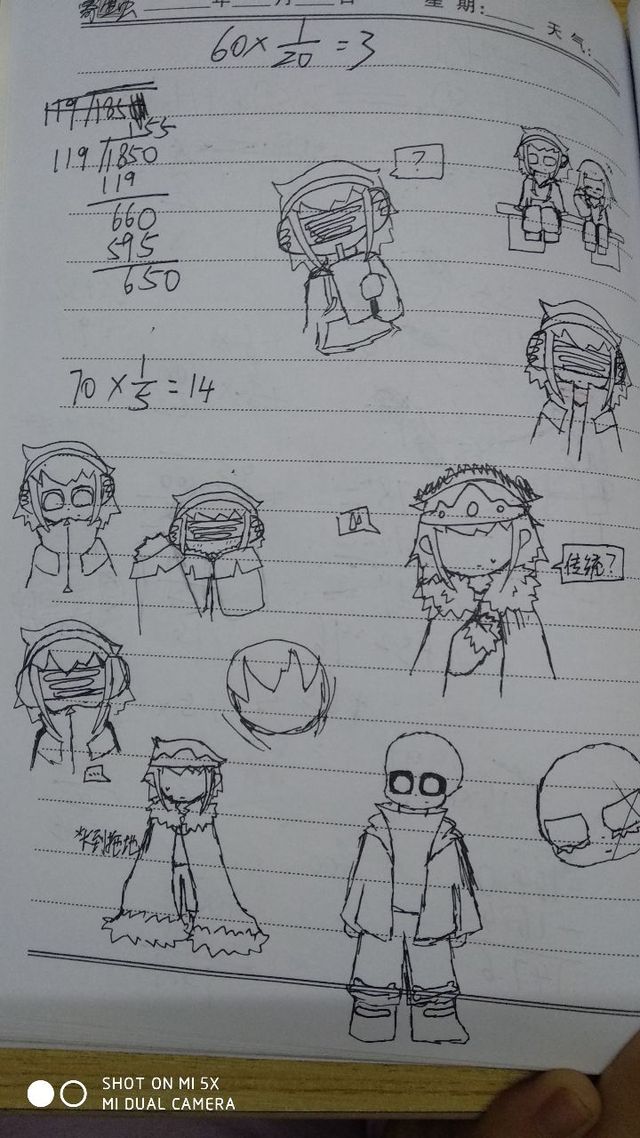 年 月 日 星期: 天气:
60 × 1/20 = 3
155
119 /1850
119
660
595
650
?
70 × 1/5 = 14
传统?
...
长到拖地
SHOT ON MI 5X
MI DUAL CAMERA